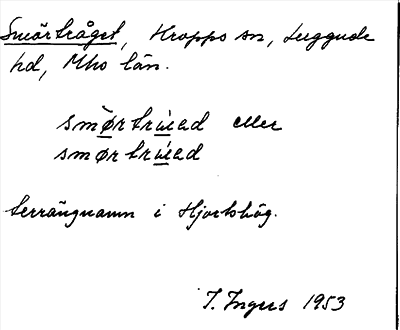 Smörtråget, Kropps sn, Luggude
hd, Mho län.
smørtrued eller
smørtrued
terrängnamn i Hjortshög.
I. Ingers 1953